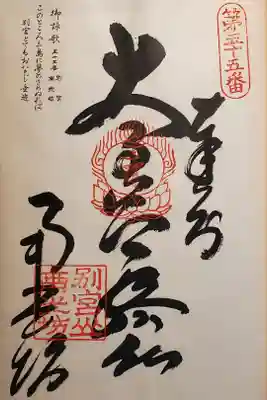 第五十五番
奉納
大通智勝仏
南光坊
別宮山
南光坊
御詠歌
このところ三島に夢のさめぬれば
別宮とてもおなじ垂迹